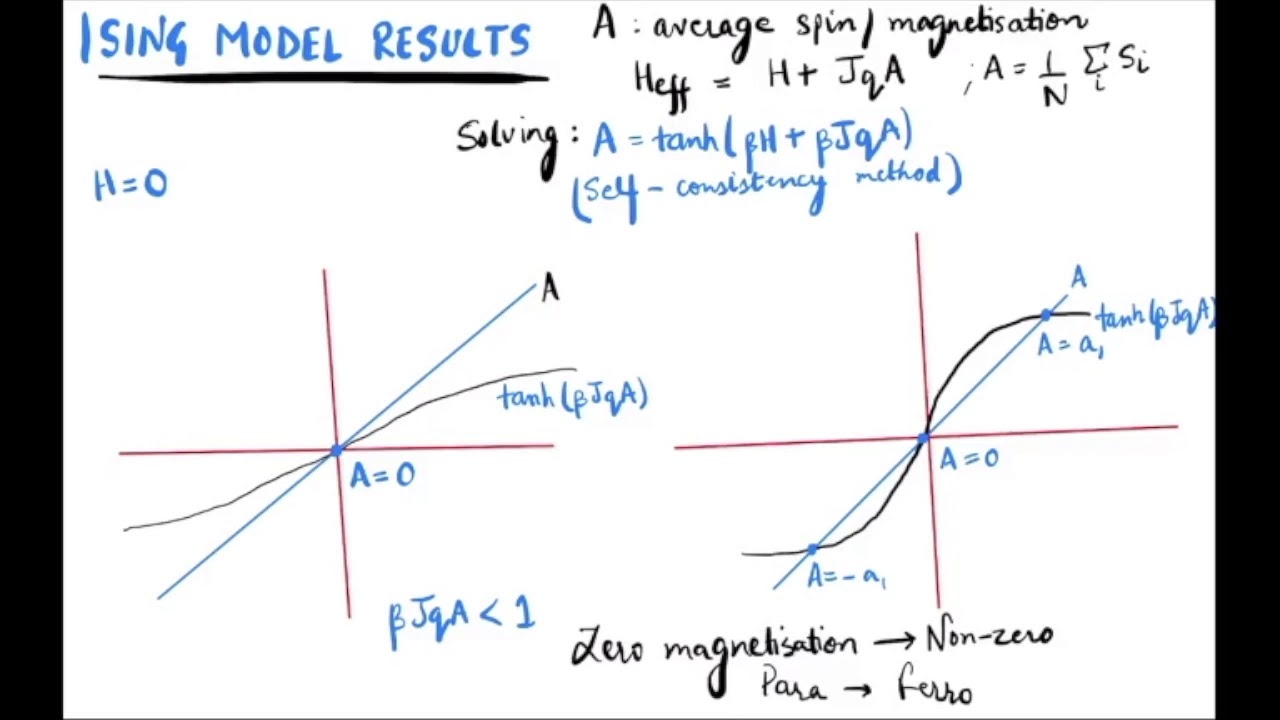 ISING MODEL RESULTS
A : average spin/magnetisation
Heff = H + JqA ; A = 1/N Σi Si
Solving : A = tanh(βH + βJqA)
(Self-consistency method)
H=0
A
tanh(βJqA)
A=0
βJqA < 1
A
tanh(βJqA)
A = a₁
A=0
A=-a₁
Zero magnetisation → Non-zero
Para → ferro